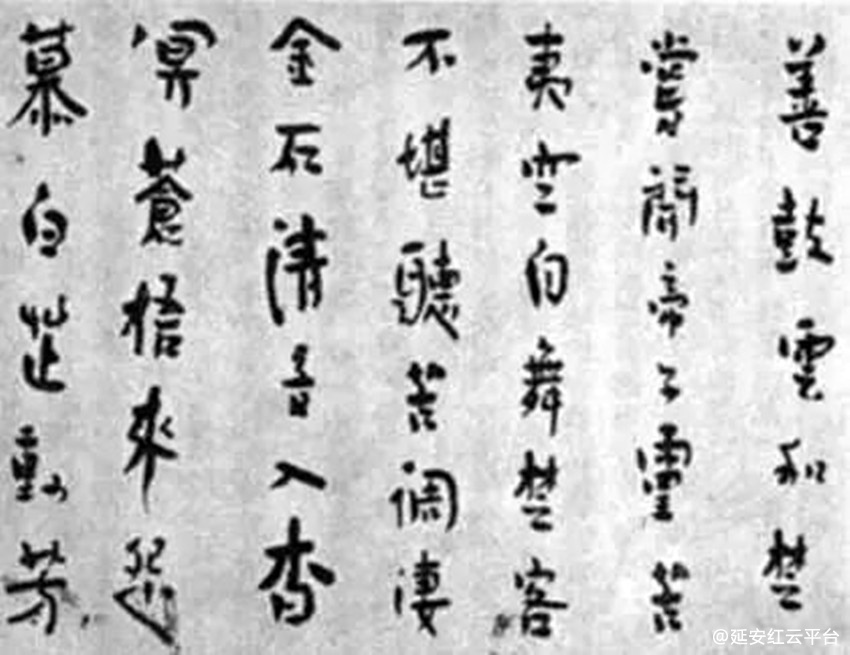 善鼓雲和瑟
嘗聞帝子靈
夷空白舞楚客
不堪聽苦調淒
金石清音入杳
冥蒼梧來怨
慕白芷動芳
@延安红云平台